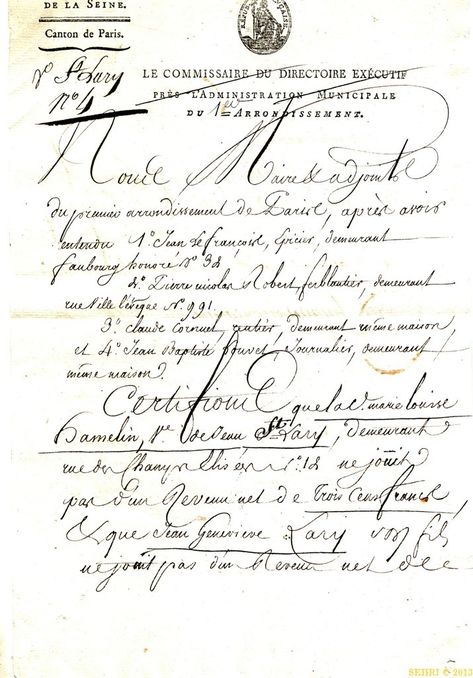 DE LA SEINE.
Canton de Paris.
Ve St Lary
no 4
RÉPUB. FRANÇAISE
LE COMMISSAIRE DU DIRECTOIRE EXÉCUTIF
PRÈS L'ADMINISTRATION MUNICIPALE
DU 1er ARRONDISSEMENT.
Nous Maire & adjoints
du premier arrondissement de Paris, après avoir
entendu 1o Jean Lefrançois, Epicier, demeurant
faubourg honoré No 32
2o Pierre nicolas Robert, ferblantier, demeurant
rue Ville l'évêque No 991
3o claude Cornuel, rentier, demeurant même maison
et 4o Jean Baptiste Journalier, demeurant
même maison
Certifions que la De marie louise
Hamelin, Ve de Jean St Lary, demeurant
rue des Champs No 12 ne jouit
pas d'un Revenu net de Trois Cens francs,
& que Jean Genevieve Lary son fils
ne jouit pas d'un Revenu net de
SEHRI © 2013